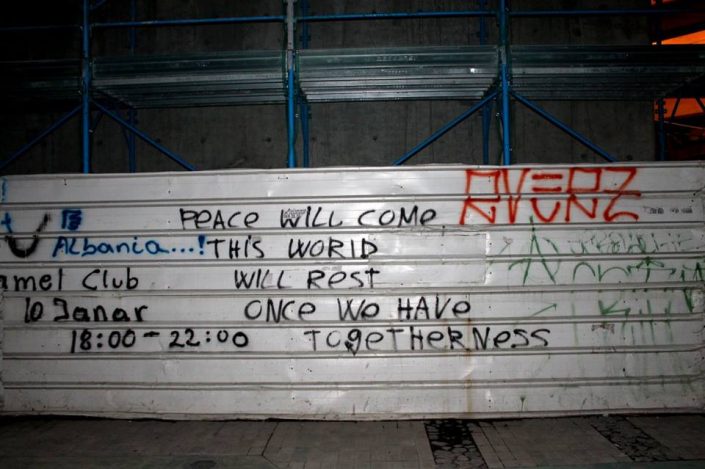 PEACE WILL COME
Albania...! THIS WORLD
amel Club WILL REST
10 Janar ONCE WE HAVE
18:00 - 22:00 TOGETHERNESS